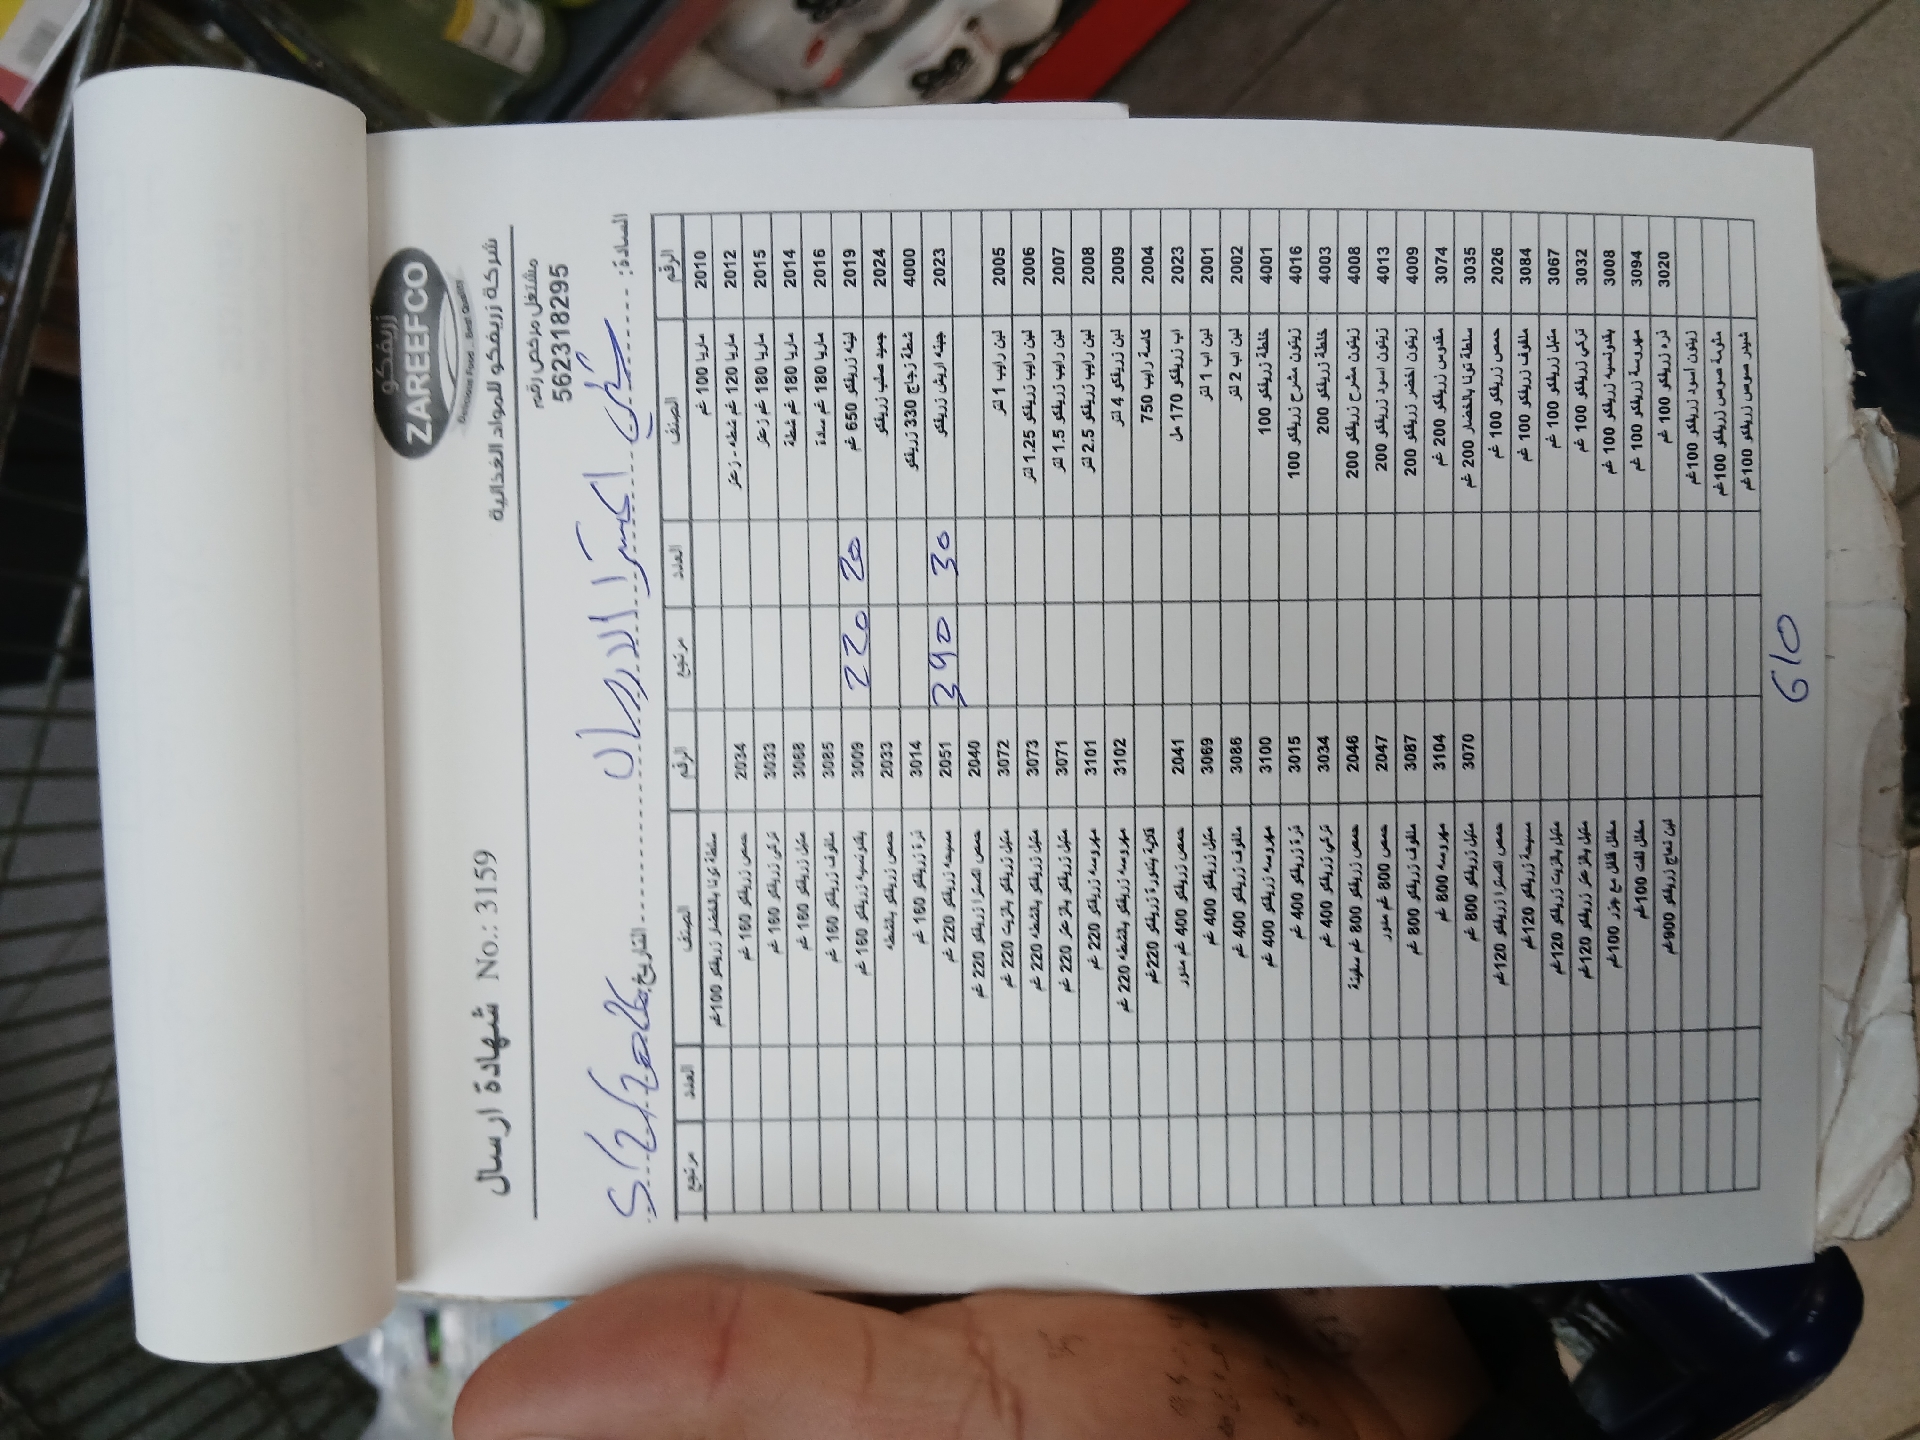 زريفكو
ZAREEFCO
Delicious Food - Best Quality
شركة زريفكو للمواد الغذائية
شهادة ارسال No.: 3159
مشتغل مرخص رقم
562318295
السادة:
التاريخ:
الرقم الصنف العدد مرتجع الرقم الصنف العدد مرتجع
2010 مارينا 100 غم سلطة تونا بالخضار زريفكو 100غم
2012 مارينا 120 غم شطه - زعتر 2034 حمص زريفكو 160 غم
2015 مارينا 180 غم زعتر 3033 تركي زريفكو 160 غم
2014 مارينا 180 غم شطة 3068 متبل زريفكو 160 غم
2016 مارينا 180 غم سادة 3085 ملفوف زريفكو 160 غم
2019 لبنه زريفكو 650 غم 20 220 3009 بقدونسيه زريفكو 160 غم
2024 جميد صلب زريفكو 2033 حمص زريفكو بالشطه
4000 شطة زجاج 330 زريفكو 3014 ذرة زريفكو 160 غم
2023 جبنه اريش زريفكو 30 390 2051 مسبحه زريفكو 220 غم
2040 حمص اكسترا زريفكو 220 غم
2005 لبن رايب 1 لتر 3072 متبل زريفكو بالزيت 220 غم
2006 لبن رايب زريفكو 1.25 لتر 3073 متبل زريفكو بالشطه 220 غم
2007 لبن رايب زريفكو 1.5 لتر 3071 متبل زريفكو بالزعتر 220 غم
2008 لبن رايب زريفكو 2.5 لتر 3101 مهروسه زريفكو 220 غم
2009 لبن زريفكو 4 لتر 3102 مهروسه زريفكو بالشطه 220 غم
2004 كاسة رايب 750 قلاية بندورة زريفكو 220غم
2023 اب زريفكو 170 مل 2041 حمص زريفكو 400 غم مدور
2001 لبن اب 1 لتر 3069 متبل زريفكو 400 غم
2002 لبن اب 2 لتر 3086 ملفوف زريفكو 400 غم
4001 خلطة زريفكو 100 3100 مهروسه زريفكو 400 غم
4016 زيتون مشرح زريفكو 100 3015 ذرة زريفكو 400 غم
4003 خلطة زريفكو 200 3034 تركي زريفكو 400 غم
4008 زيتون مشرح زريفكو 200 2046 حمص زريفكو 800 غم سفينة
4013 زيتون اسود زريفكو 200 2047 حمص 800 غم مدور
4009 زيتون اخضر زريفكو 200 3087 ملفوف زريفكو 800 غم
3074 مقدوس زريفكو 200 غم 3104 مهروسه 800 غم
3035 سلطة تونا بالخضار 200 غم 3070 متبل زريفكو 800 غم
2026 حمص زريفكو 100 غم حمص اكسترا زريفكو 120غم
3084 ملفوف زريفكو 100 غم مسبحة زريفكو 120غم
3067 متبل زريفكو 100 غم متبل بالزيت زريفكو 120غم
3032 تركي زريفكو 100 غم متبل بالزعتر زريفكو 120غم
3008 بقدونسيه زريفكو 100 غم مخلل فلفل مع جزر 100غم
3094 مهروسة زريفكو 100 غم مخلل لفت 100غم
3020 ذره زريفكو 100 غم لبن نعاج زريفكو 900غم
زيتون اسود زريفكو 100غم
مثومة صوص زريفكو 100غم
شيدر صوص زريفكو 100غم
610